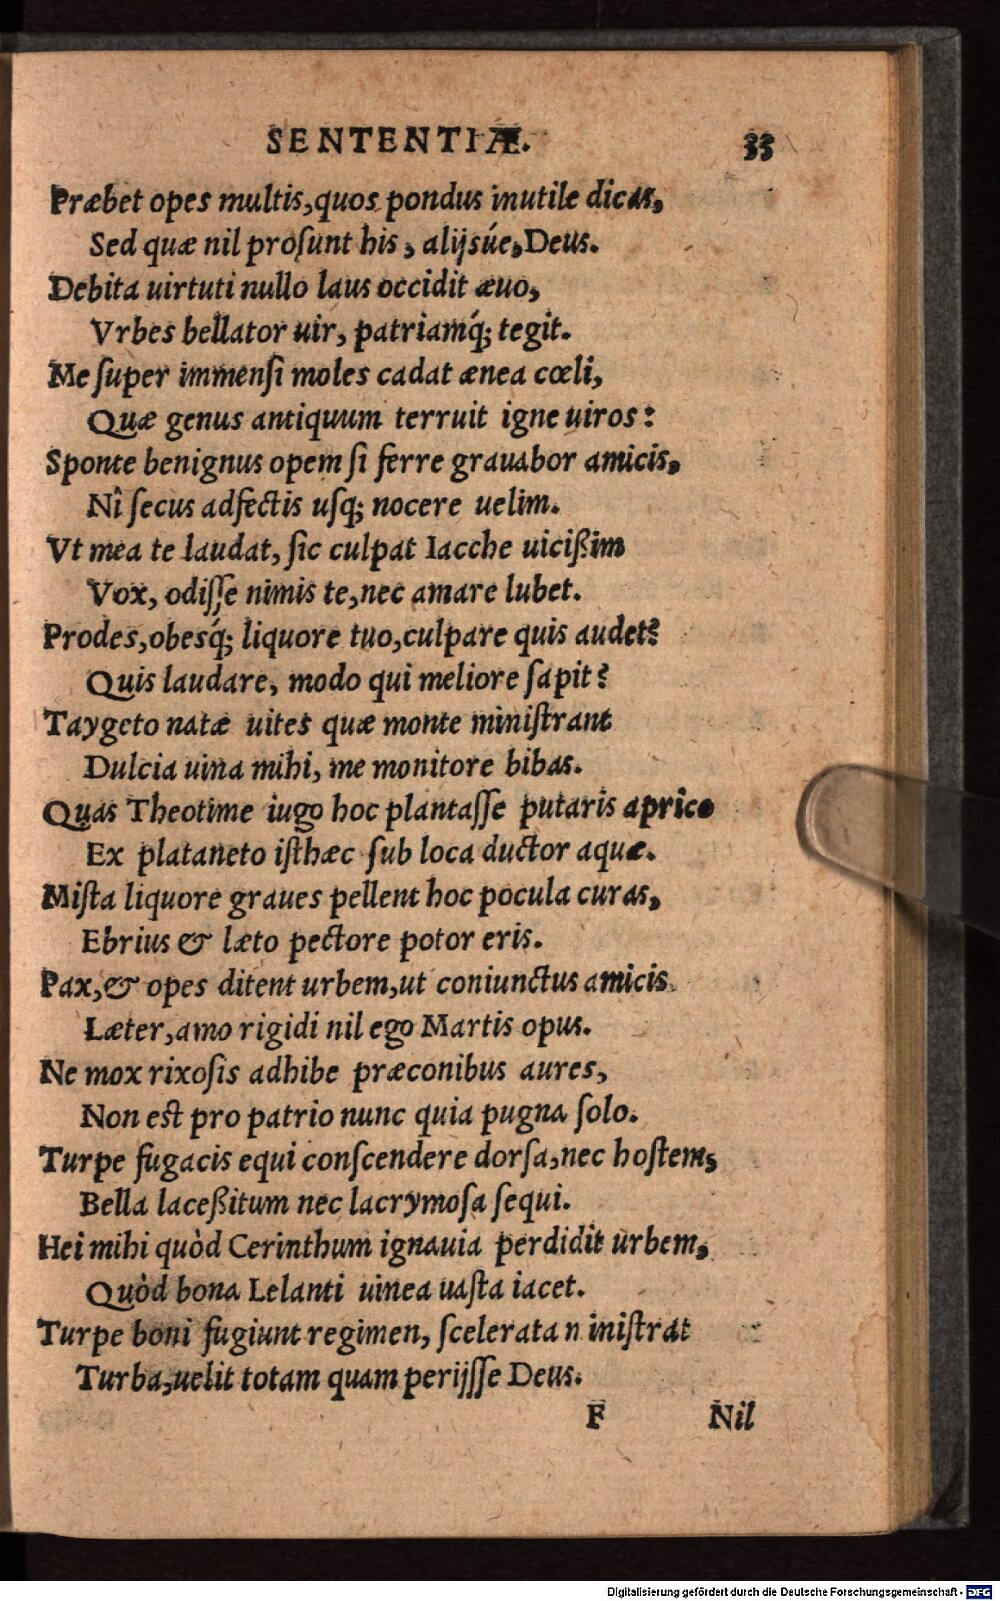 SENTENTIÆ. 33
Præbet opes multis, quos pondus inutile dicas,
Sed quæ nil proſunt his, alijsúe, Deus.
Debita uirtuti nullo laus occidit æuo,
Vrbes bellator uir, patriamq́; tegit.
Me ſuper immenſi moles cadat ænea cœli,
Quæ genus antiquum terruit igne uiros:
Sponte benignus opem ſi ferre grauabor amicis,
Nî ſecus adfectis uſq; nocere uelim.
Vt mea te laudat, ſic culpat Iacche uicißim
Vox, odiſſe nimis te, nec amare lubet.
Prodes, obesq́; liquore tuo, culpare quis audet?
Quis laudare, modo qui meliore ſapit?
Taygeto natæ uites quæ monte miniſtrant
Dulcia uina mihi, me monitore bibas.
Quas Theotime iugo hoc plantaſſe putaris aprico
Ex plataneto iſthæc ſub loca ductor aquæ.
Miſta liquore graues pellent hoc pocula curas,
Ebrius & læto pectore potor eris.
Pax, & opes ditent urbem, ut coniunctus amicis
Læter, amo rigidi nil ego Martis opus.
Ne mox rixoſis adhibe præconibus aures,
Non est pro patrio nunc quia pugna ſolo.
Turpe fugacis equi conſcendere dorſa, nec hoſtem,
Bella laceßitum nec lacrymoſa ſequi.
Hei mihi quòd Cerinthum ignauia perdidit urbem,
Quòd bona Lelanti uinea uaſta iacet.
Turpe boni fugiunt regimen, ſcelerata n iniſtrat
Turba, uelit totam quam perijſſe Deus.
F Nil
Digitalisierung gefördert durch die Deutsche Forschungsgemeinschaft - DFG